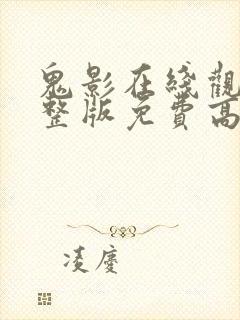 鬼影在綫觀
整版免費高
凌慶